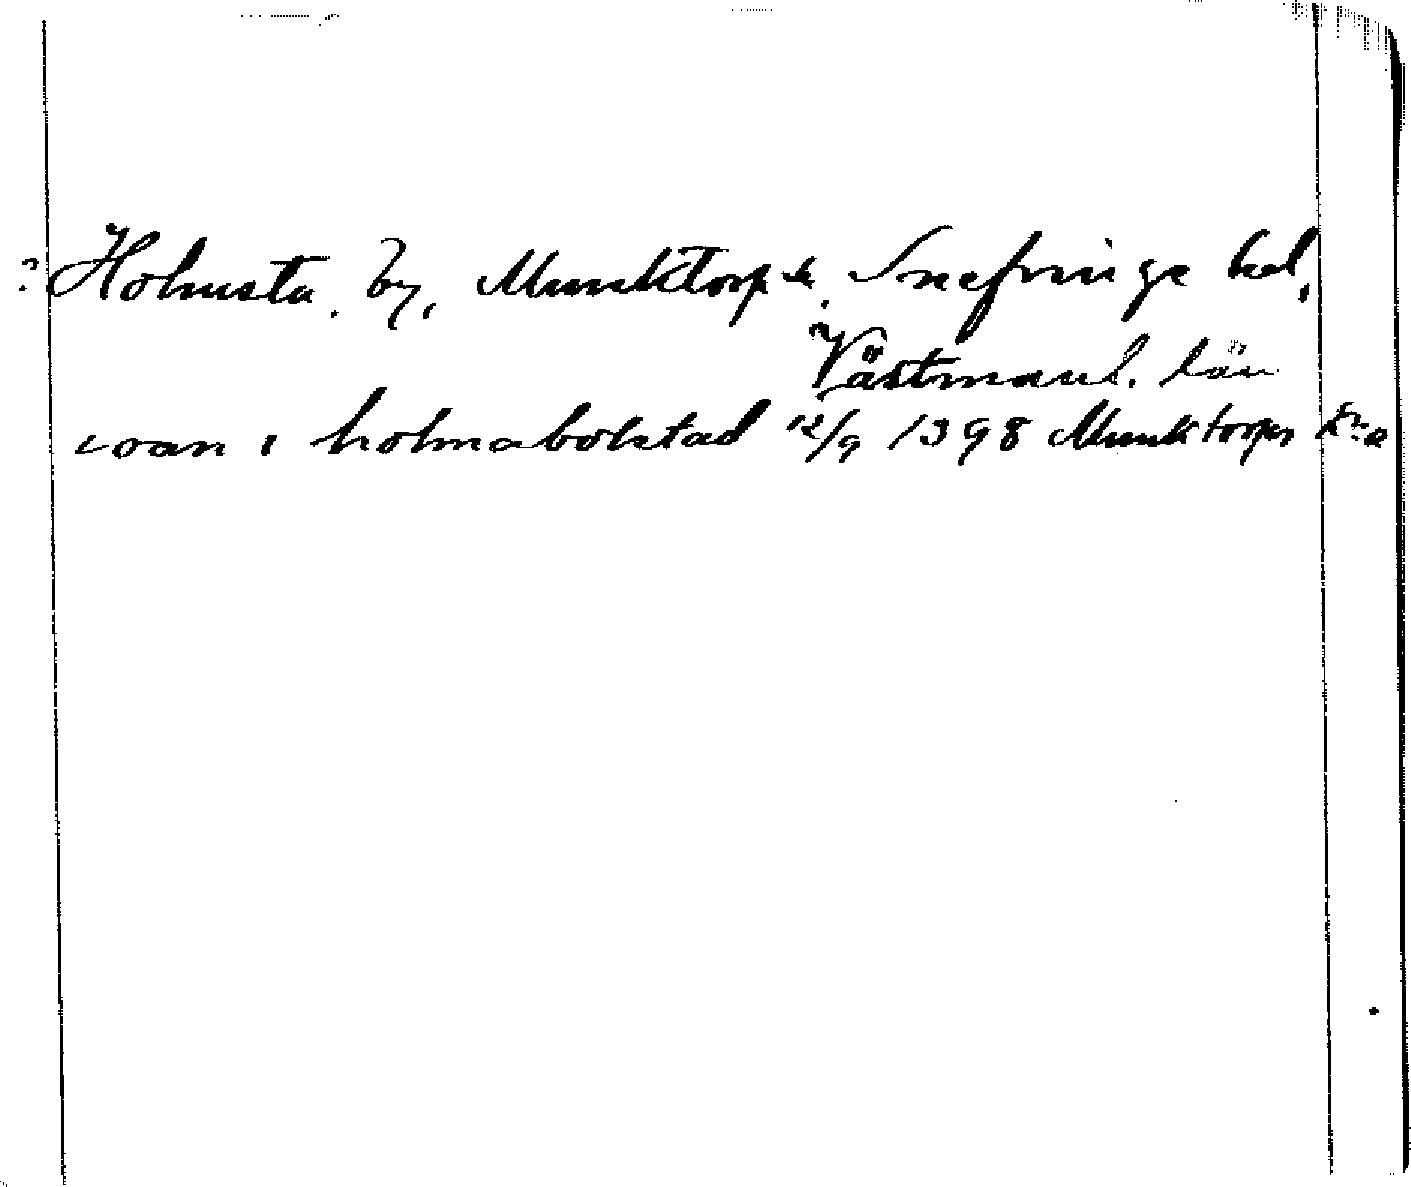 ? Holmsta. by, Munktorp sn. Snefringe hd,
Västmanl. län
ioan i holmabolstad 12/9 1398 Munktorps k:a